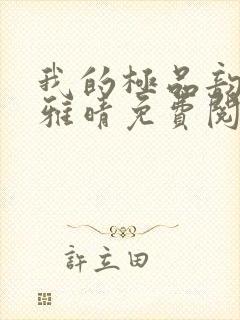 我的極品
雅晴免費閱
許立田